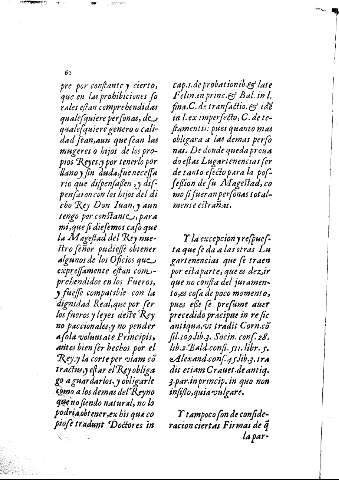 62
pre por constante y cierto,
que en las prohibiciones fo
rales estan comprehendidas
qualesquiere personas, de
qualesquiere genero o cali-
dad sean, aun que sean las
mugeres o hijos de los pro-
pios Reyes; y por tenerlo por
llano y sin duda, fue necessa
rio que dispensassen, y dis-
pensaron con los hijos del di
cho Rey Don Juan, y aun
tengo por constante, para
mi, que si diesemos caso que
la Magestad del Rey nue-
stro señor pudiesse obtener
algunos de los Oficios que
expressamente estan com-
prehendidos en los Fueros,
y fuesse compatible con la
dignidad Real, que por ser
los fueros y leyes deste Rey
no paccionales, y no pender
a sola voluntate Principis,
antes bien ser hechos por el
Rey, y la corte per viam cõ
tractus, y estar el Rey obliga
go a guardarlos, y obligarle
como a los demas del Reyno
que no siendo natural, no lo
podria obtener, ex his qua co
piose tradunt Doctores in
cap. 1. de probationib. & late
Felin. in princ. & Bal. in l.
fina. C. de transactio. & idẽ
in l. ex imperfecto, C. de
testamenti: pues quanto mas
obligara a las demas perso
nas. De donde queda proua
do estas Lugartenencias ser
de tanto efecto para la pos-
session de su Magestad, co
mo si fueran personas total-
mente estrañas.
Y la excepcion y respues-
ta que se da a las otras Lu
gartenencias que se traen
por esta parte, que es dezir
que no consta del juramen-
to, es cosa de poco momento,
pues esse se presume auer
precedido præcipue in re sic
antiqua, vt tradit Corn. cõ
sil. 109. lib. 3. Socin. cons. 28.
lib. 2. Bald. cons. 511. libr. 5.
Alexand. cons. 45. lib. 3. tra
dit etiam Crauet. de antiq.
3. par. in princip. in quo non
insisto, quia vulgare.
Y tampoco son de conside-
racion ciertas Firmas de q̃
la par-